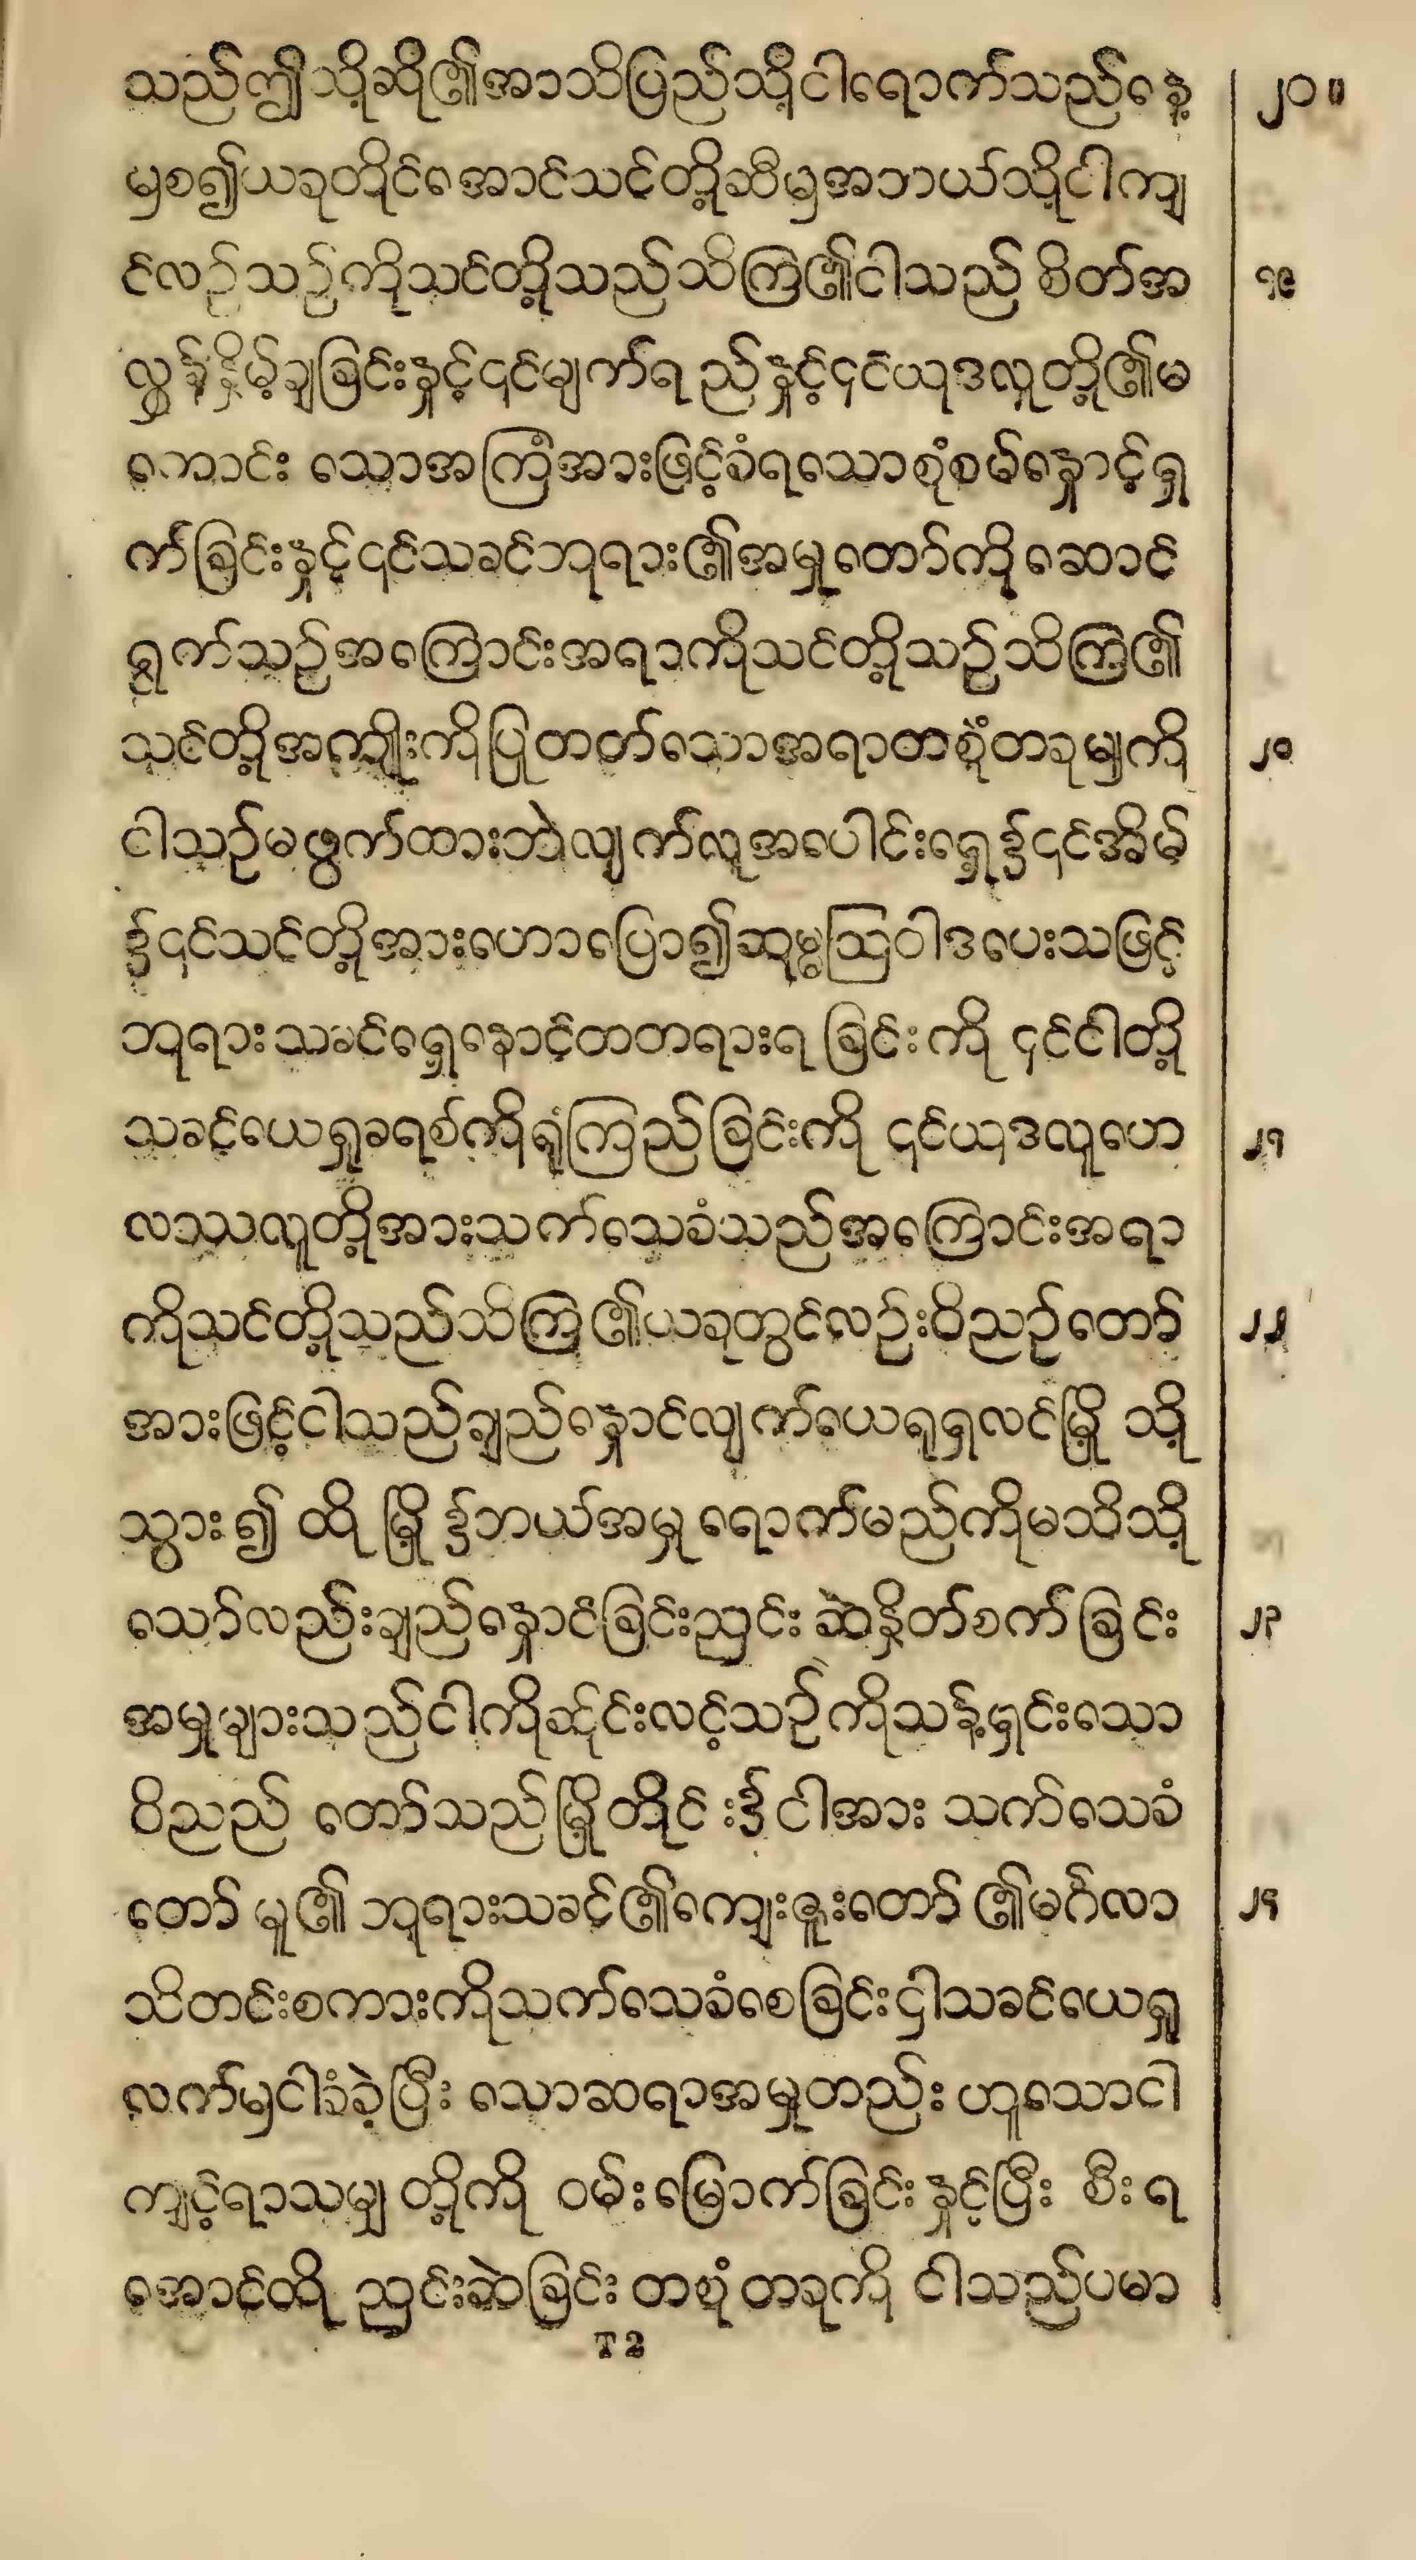 သည်ဤသို့ဆို၏အာသိပြည်သို့ငါရောက်သည်နေ့ ၂၀။
မှစ၍ယခုတိုင်အောင်သင်တို့ဆီမှအဘယ်သို့ငါကျ
င်လဉ်သဉ်ကိုသင်တို့သည်သိကြ၏ငါသည် စိတ်အ ၁၉
လွန်နှိမ့်ချခြင်းနှင့်၎င်မျက်ရည်နှင့်၎င်ယုဒလူတို့၏မ
ကောင်း သောအကြံအားဖြင့်ခံရသောစုံစမ်နှောင့်ရှ
က်ခြင်းနှင့်၎င်သခင်ဘုရား၏အမှုတော်ကိုဆောင်
ရွက်သဉ်အကြောင်းအရာကိုသင်တို့သဉ်သိကြ၏
သင်တို့အကျိုးကိုပြုတတ်သောအရာတစုံတခုမျှကို ၂၀
ငါသဉ်မဖွက်ထားဘဲလျက်လူအပေါင်းရှေ့၌၎င်အိမ်
၌၎င်သင်တို့အားဟောပြော၍ဆုမ္မဩဝါဒပေးသဖြင့်
ဘုရားသခင်ရှေ့နှောင့်တတရားရ ခြင်းကို ၎င်ငါတို့
သခင့်ယေရှုခရစ်ကိုရုံကြည်ခြင်းကို ၎င်ယုဒလူဟေ ၂၁
လဿလူတို့အားသက်သေခံသည်အကြောင်းအရာ
ကိုသင်တို့သည်သိကြ၏ယခုတွင်လဉ်းဝိညဉ်တော် ၂၂
အားဖြင့်ငါသည်ချည်နှောင်လျက်ယေရုရှလင်မြို့ သို့
သွား၍ ထိုမြို့၌ဘယ်အမှုရောက်မည်ကိုမသိသို့
သော်လည်းချည်နှောင်ခြင်းညှင်းဆဲနှိတ်စက်ခြင်း ၂၃
အမှုများသည်ငါကိုဆိုင်းလင့်သဉ်ကိုသန့်ရှင်းသော
ဝိညည် တော်သည်မြို့တိုင်း၌ငါအား သက်သေခံ
တော် မူ၏ ဘုရားသခင့်၏ကျေးဇူးတော်၏မင်္ဂလာ ၂၄
သိတင်းစကားကိုသက်သေခံစေခြင်းငှါသခင်ယေရှု
လက်မှငါခံခဲ့ပြီး သောဆရာအမှုတည်း ဟူသောငါ
ကျင့်ရာသမျှ တို့ကို ဝမ်းမြောက်ခြင်းနှင့်ပြီး စီးရ
အောင်ထို ညှင်းဆဲခြင်း တစုံ တခုကို ငါသည်ပမာ
T 2